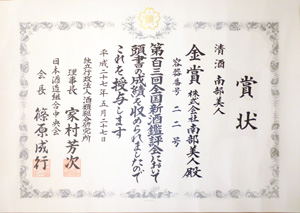 賞状
清酒 南部美人
金賞 株式会社南部美人殿
容器番号 二二号
第百三回全国新酒鑑評会において
頭書の成績を収められましたので
これを授与します
平成二十七年五月二十七日
独立行政法人酒類総合研究所
理事長 家村芳次
日本酒造組合中央会
会長 篠原成行